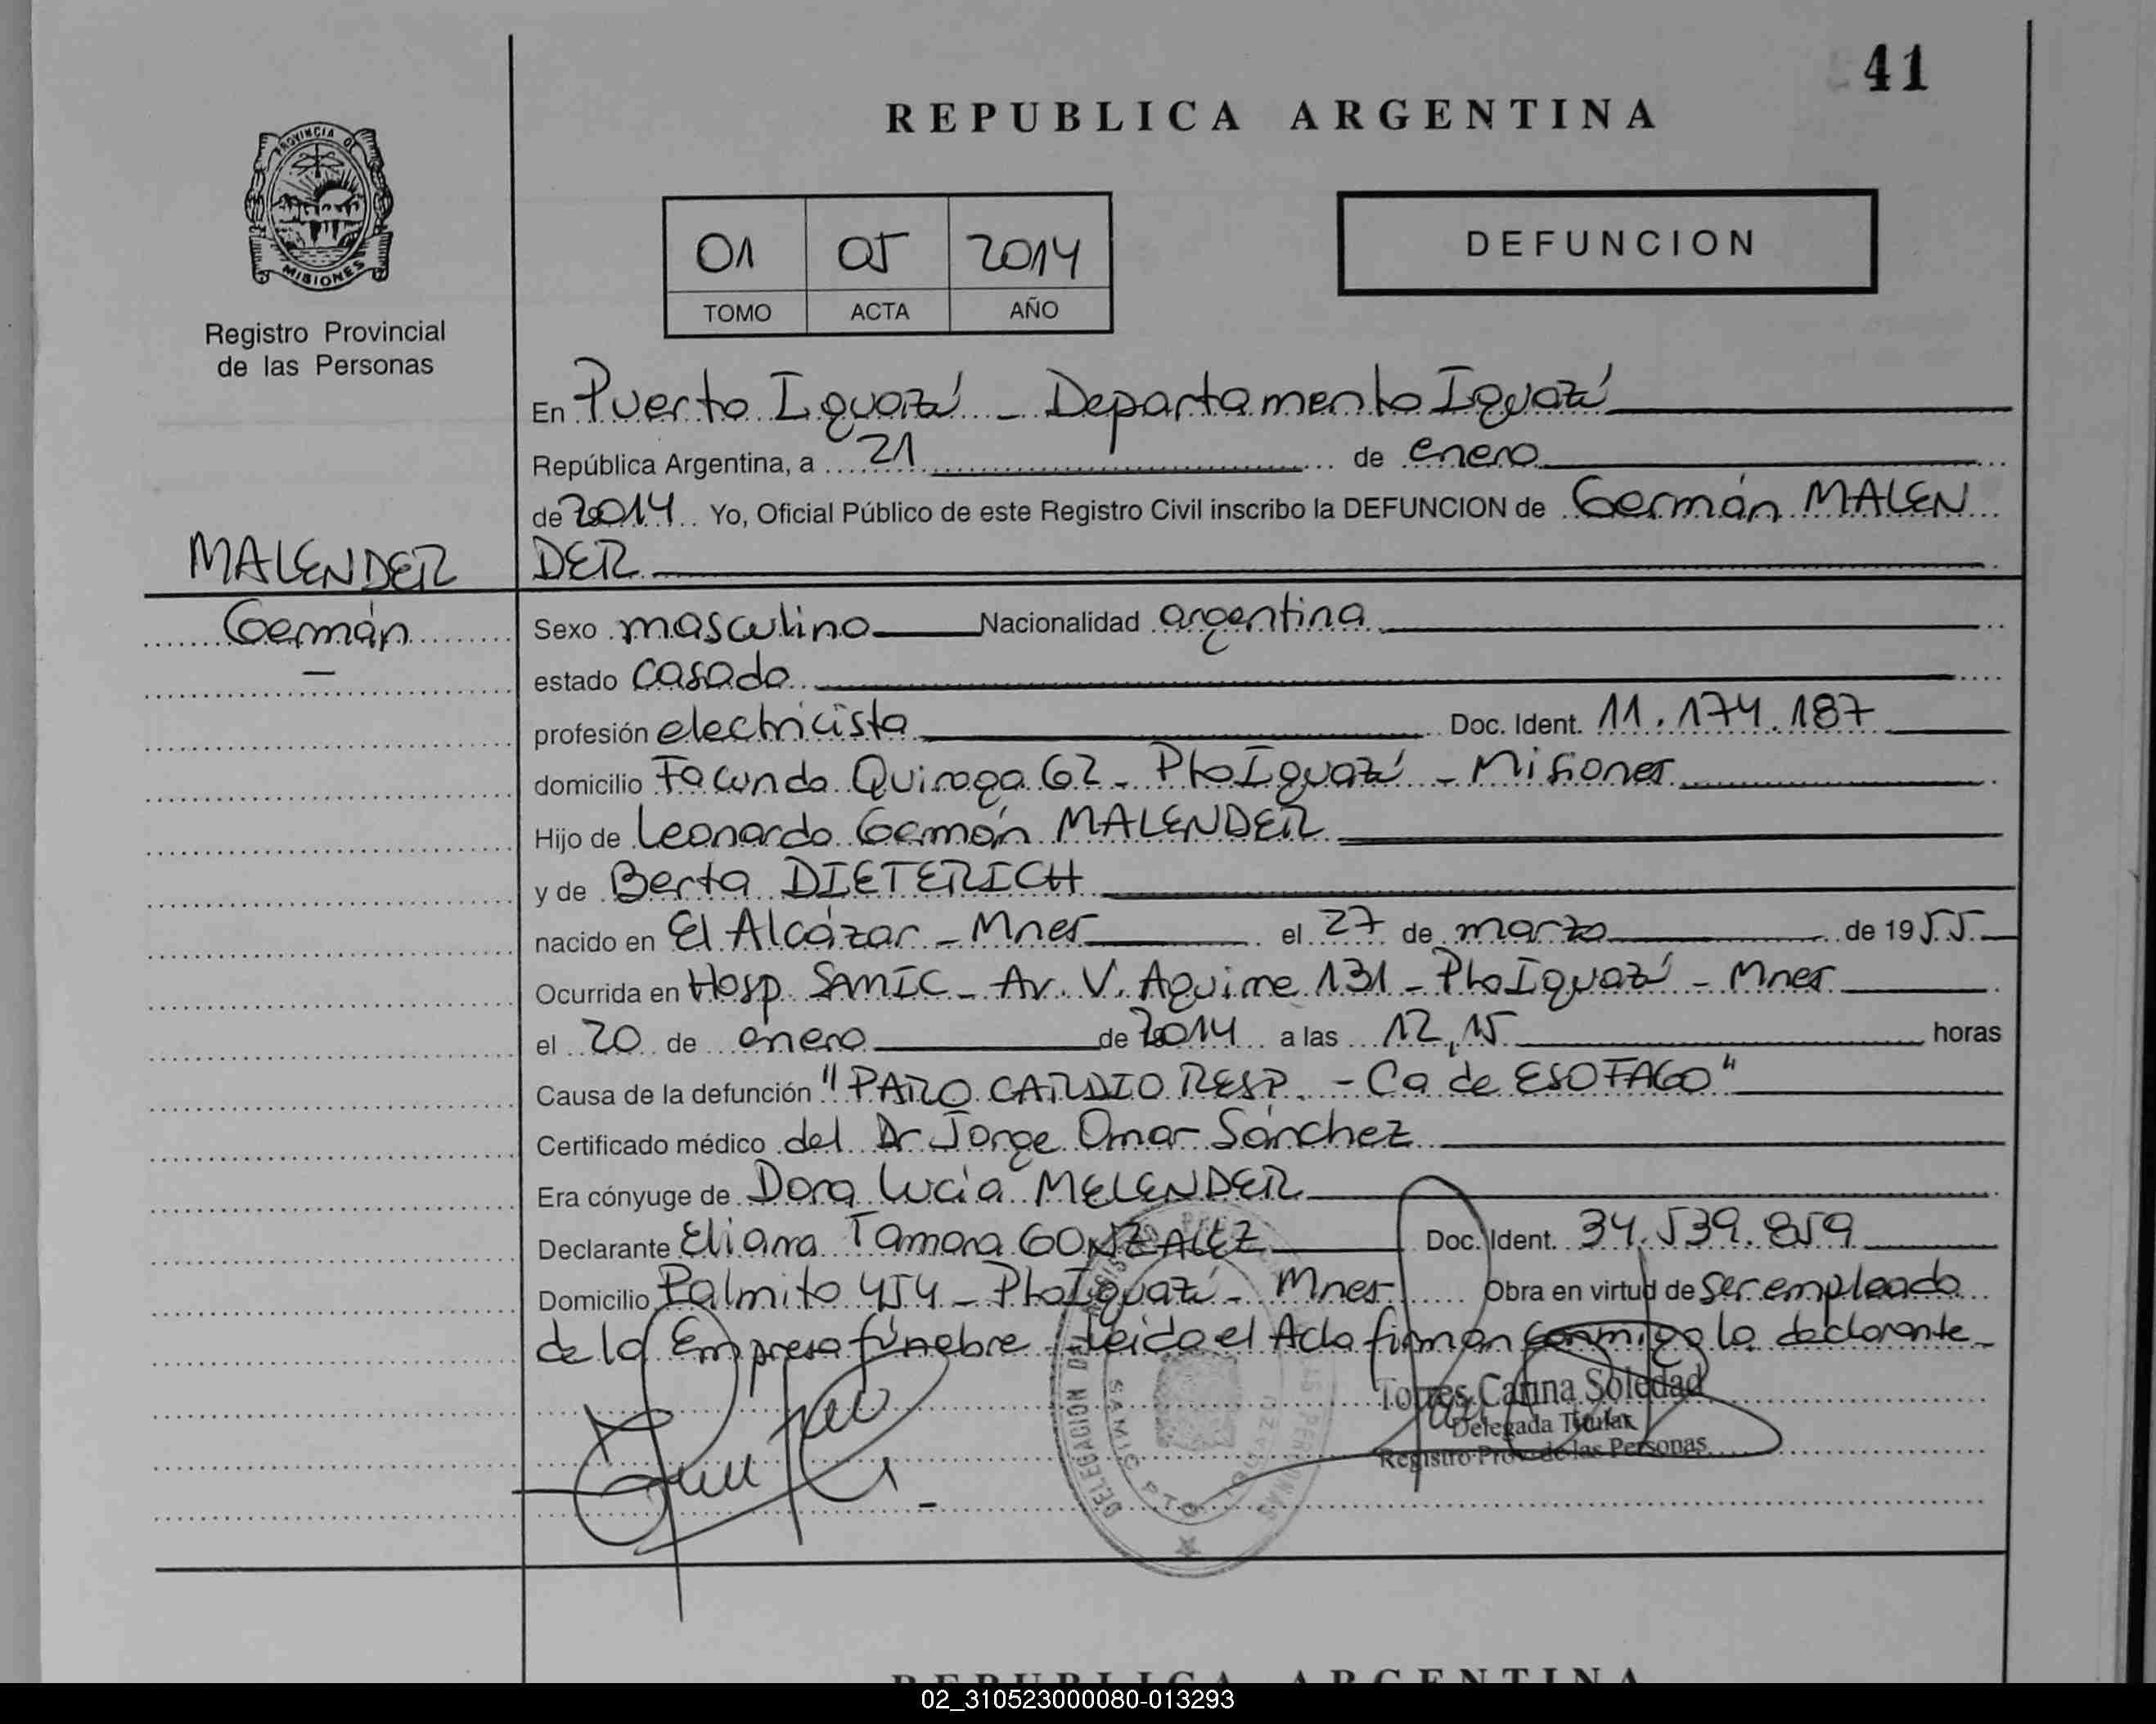 41
REPUBLICA ARGENTINA
PROVINCIA DE
MISIONES
Registro Provincial
de las Personas
01 05 2014
TOMO ACTA AÑO
DEFUNCION
En Puerto Iguazú - Departamento Iguazú
República Argentina, a 21 de enero
de 2014 Yo, Oficial Público de este Registro Civil inscribo la DEFUNCION de Germán MALEN
DER
MALENDER
Germán
Sexo masculino Nacionalidad argentina
estado casado
profesión electricista Doc. Ident. 11.174.187
domicilio Facundo Quiroga 62 - Pto Iguazú - Misiones
Hijo de Leonardo Germán MALENDER
y de Berta DIETERICH
nacido en El Alcázar - Mnes el 27 de marzo de 1955
Ocurrida en Hosp SAMIC - Av. V. Aguirre 131 - Pto Iguazú - Mnes
el 20 de enero de 2014 a las 12,15 horas
Causa de la defunción "PARO CARDIO RESP. - Ca de ESOFAGO"
Certificado médico del Dr Jorge Omar Sánchez
Era cónyuge de Dora Lucía MELENDER
Declarante Eliana Tamara GONZALEZ Doc. Ident. 34.539.859
Domicilio Palmito 454 - Pto Iguazú - Mnes Obra en virtud de ser empleado
de la Empresa fúnebre - Leida el Acta firman conmigo la declarante -
Torres, Carina Soledad
Delegada Titular
Registro Prov. de las Personas
DELEGACION DEL
SAMIC PTO. IGUAZU
REPUBLICA ARGENTINA
02_310523000080-013293